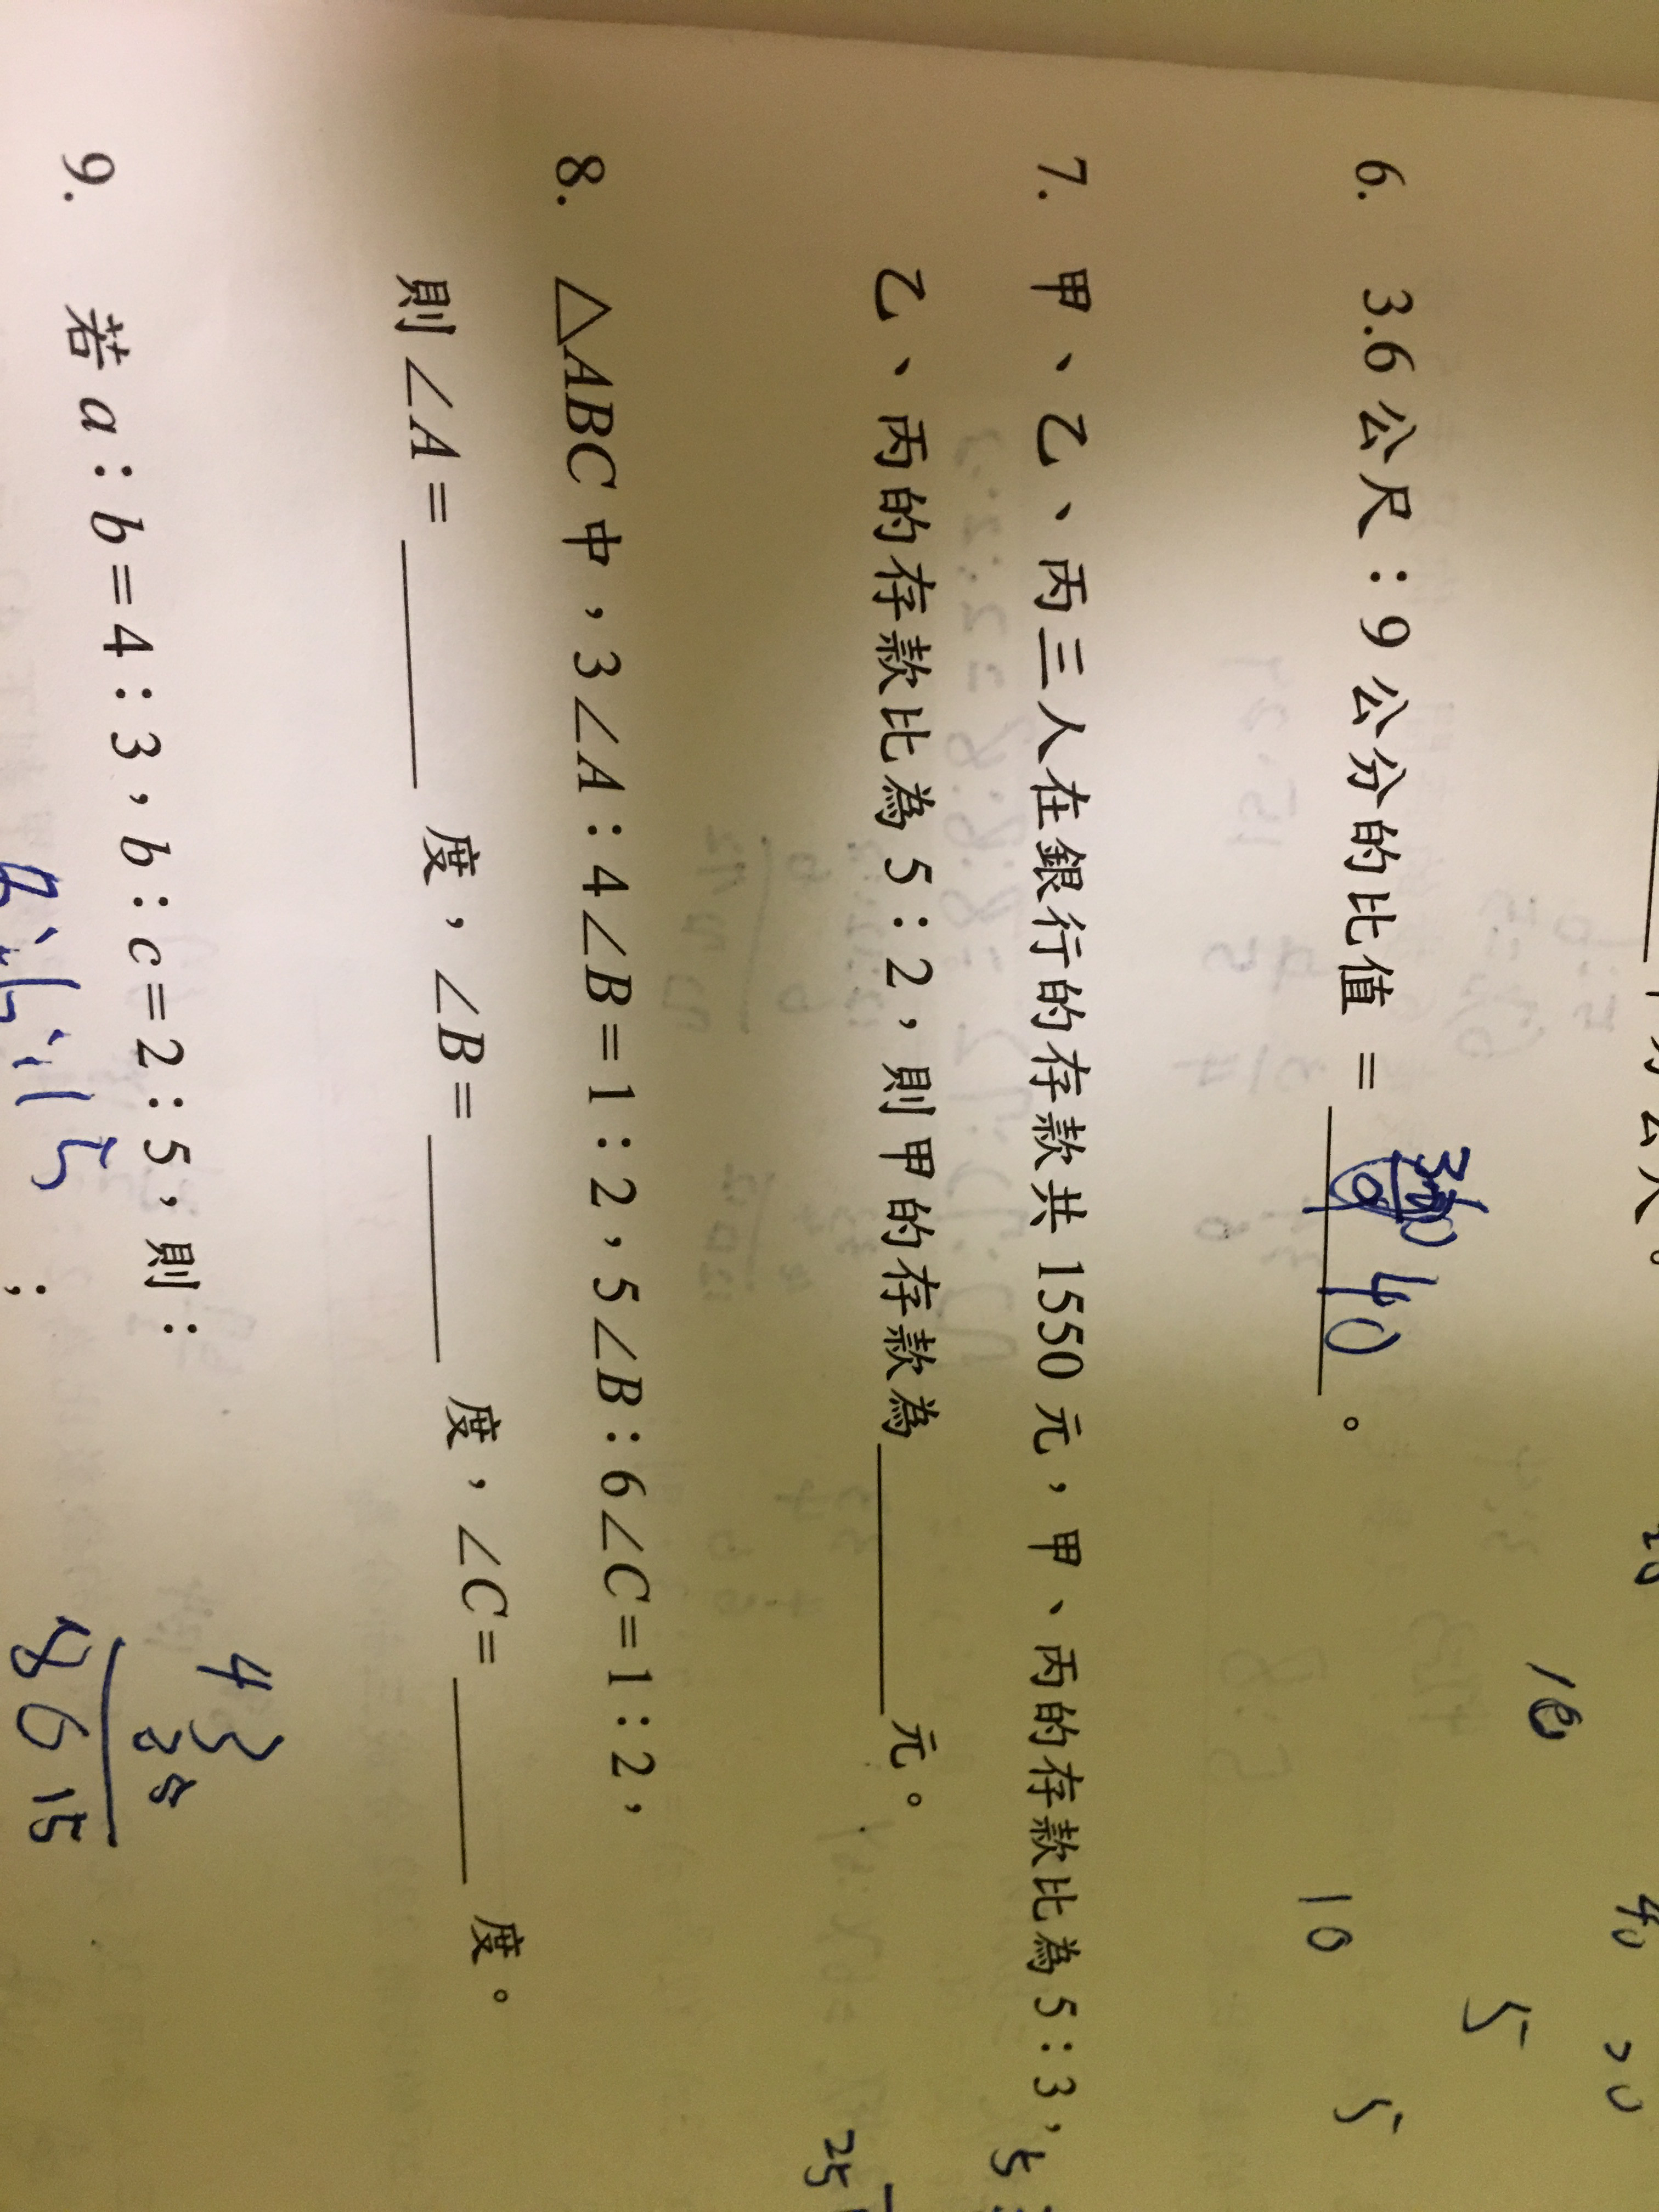 6. 3.6 公尺：9 公分的比值 = 40 。
7. 甲、乙、丙三人在銀行的存款共 1550 元，甲、丙的存款比為 5：3，
乙、丙的存款比為 5：2，則甲的存款為______元。
8. △ABC 中，3∠A：4∠B=1：2，5∠B：6∠C=1：2，
則∠A=______度，∠B=______度，∠C=______度。
9. 若 a：b=4：3，b：c=2：5，則：
4 3
2 5
8 6 15
10
10
5
5
40
20
25
5
；